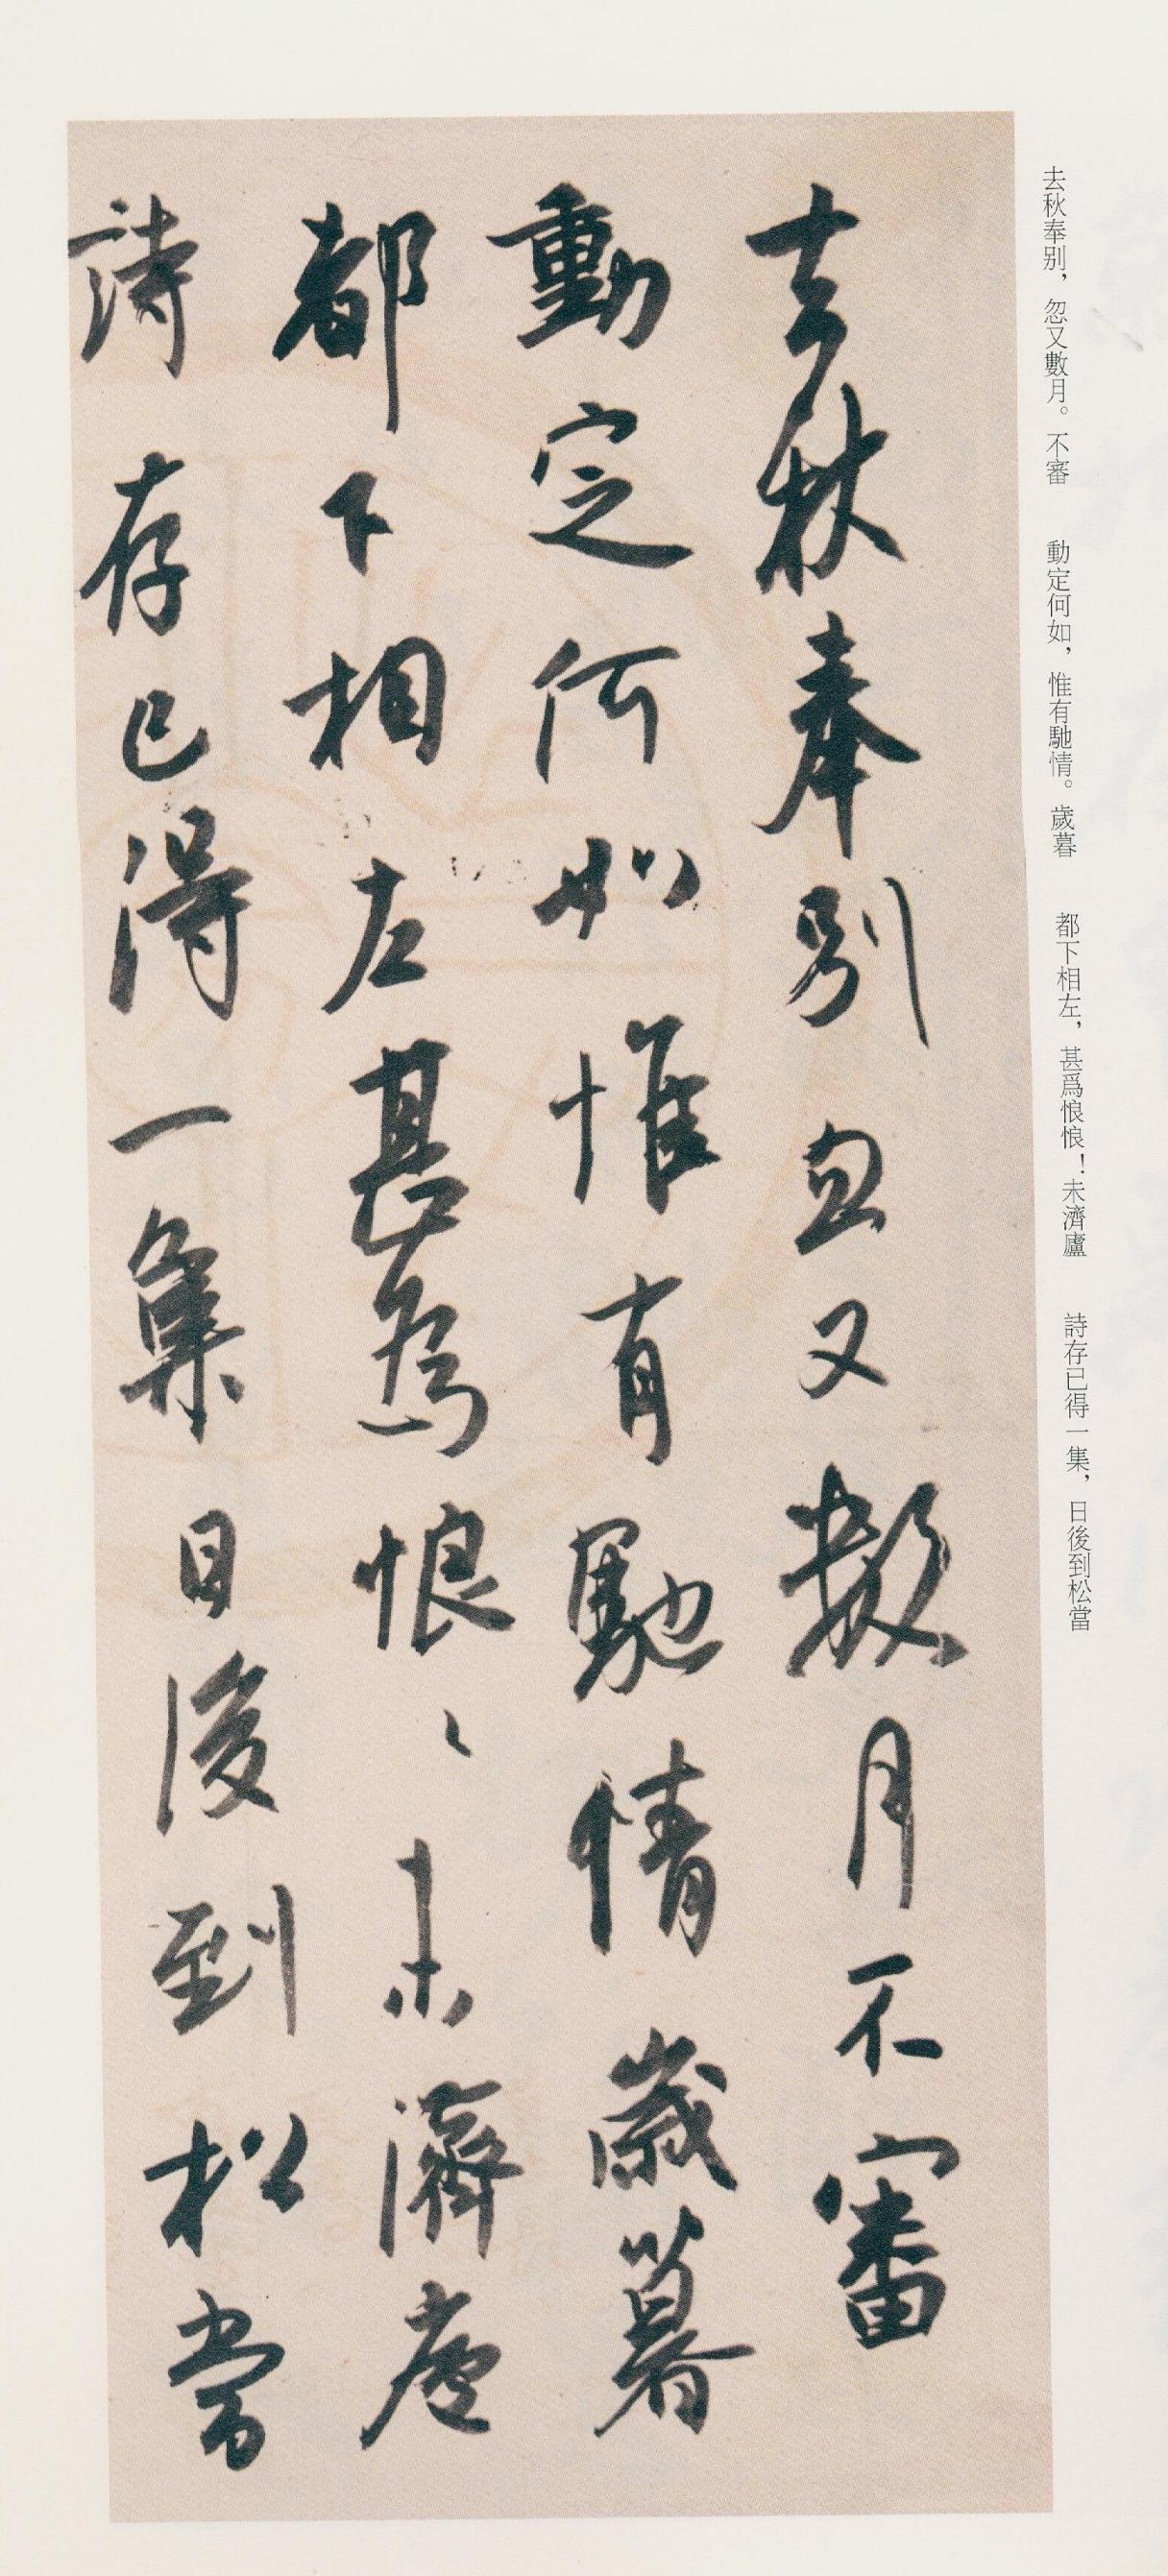 去秋奉别，忽又數月。不審　動定何如，惟有馳情。歲暮　都下相左，甚爲悢悢！未濟廬　詩存已得一集，日後到松當
去秋奉別忽又數月不審
動定何如惟有馳情歲暮
都下相左甚為悢〻未濟廬
詩存已得一集日後到松當